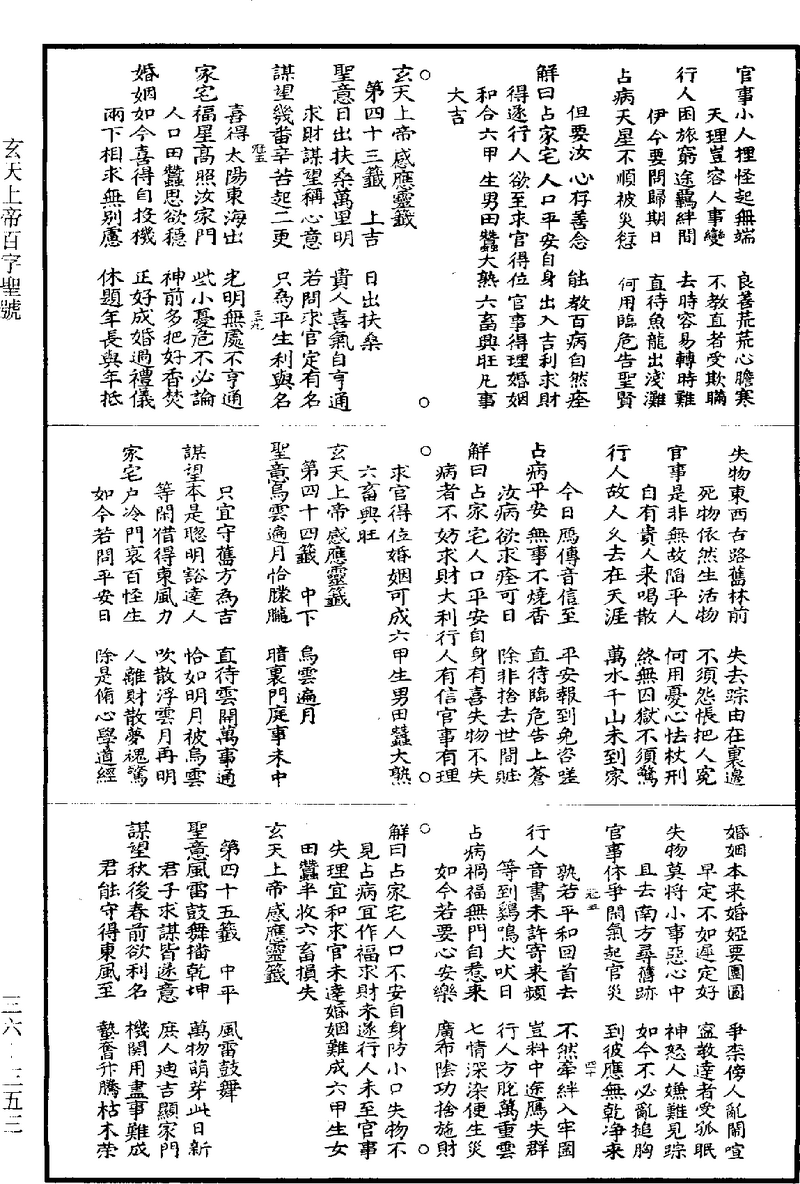 官事小人捏怪起無端　良善荒荒心膽寒
天理豈容人事變　不教直者受欺瞞
行人困旅窮途羈絆間　去時容易轉時難
伊今要問歸期日　直待魚龍出淺灘
占病天星不順被災愆　何用臨危告聖賢
但要汝心存善念　能教百病自然痊
解曰占家宅人口平安自身出入吉利求財
得遂行人欲至求官得位官事得理婚姻
和合六甲生男田蠶大熟六畜興旺凡事
大吉
玄天上帝感應靈籤
第四十三籤　上吉　日出扶桑
聖意日出扶桑萬里明　貴人喜氣自亨通
求財謀望稱心意　若問求官定有名
謀望幾畨辛苦起二更　只為平生利與名
喜得太陽東海出　光明無處不亨通
家宅福星高照汝家門　些小憂危不必論
人口田蠶思欲穩　神前多把好香焚
婚姻如今喜得自投機　正好成婚過禮儀
兩下相求無別慮　休題年長與年低
失物東西古路舊林前　失去踪由在裏邊
死物依然生活物　不須怨悵把人寃
官事是非無故陷平人　何用憂心怯杖刑
自有貴人来喝散　終無囚獄不須驚
行人故人久去在天涯　萬水千山未到家
今日鴈傳音信至　平安報到免咨嗟
占病平安無事不燒香　直待臨危告上蒼
汝病欲求痊可日　除非捨去世間賍
解曰占家宅人口平安自身有喜失物不失
病者不妨求財大利行人有信官事有理
求官得位婚姻可成六甲生男田蠶大熟
六畜興旺
玄天上帝感應靈籤
第四十四籤　中下　烏雲遍月
聖意烏雲遍月恰朦朧　暗裏門庭事未中
只宜守舊方為吉　直待雲開萬事通
謀望本是聰明豁達人　恰如明月被烏雲
等閑借得東風力　吹散浮雲月再明
家宅户冷門衰百怪生　人離財散夢魂驚
如今若問平安日　除是脩心學道經
婚姻本来婚婭要團圓　爭柰傍人亂鬧喧
早定不如遲定好　寍教達者受孤眠
失物莫將小事惡心中　神怒人嫌難見踪
且去南方尋舊跡　如今不必亂搥胸
官事休爭閑氣起官災　到彼應無乾淨来
孰若平和回首去　不然牽絆入牢圄
行人音書未許寄来頻　豈料中途鴈失群
等到鷄鳴犬吠日　行人方脫萬重雲
占病禍福無門自惹来　七情深染便生災
如今若要心安樂　廣布陰功捨施財
解曰占家宅人口不安自身防小口失物不
見占病宜作福求財未遂行人未至官事
失理宜和求官未達婚姻難成六甲生女
田蠶半收六畜損失
玄天上帝感應靈籤
第四十五籤　中平　風雷鼓舞
聖意風雷鼓舞播乾坤　萬物萌芽此日新
君子求謀皆遂意　庶人迪吉顯家門
謀望秋後春前欲利名　機關用盡事難成
君能守得東風至　蟄奮升騰枯木榮
玄天上帝百字聖號
三六·三五三